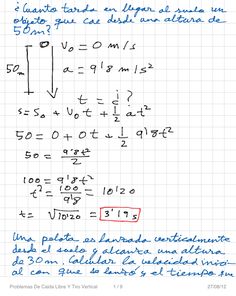 ¿Cuanto tarda en llegar al suelo un
objeto que cae desde una altura de
50m?
V₀ = 0 m/s
50m
a = 9'8 m/s²
t = ¿?
s = S₀ + V₀t + 1/2 at²
50 = 0 + 0t + 1/2 9'8t²
50 = 9'8t²/2
100 = 9'8t²
t² = 100/9'8 = 10'20
t = √10'20 = 3'19 s
Una pelota es lanzada verticalmente
desde el suelo y alcanza una altura
de 30m. Calcular la velocidad inici
al con que se lanzo y el tiempo que
Problemas De Caida Libre Y Tiro Vertical
1 / 9
27/08/12